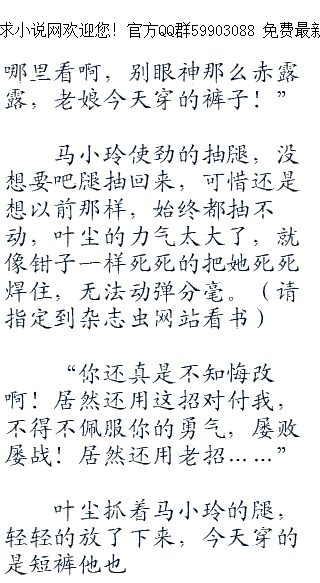 求小说网欢迎您！官方QQ群59903088 免费最新
哪里看啊，别眼神那么赤露
露，老娘今天穿的裤子！”
马小玲使劲的抽腿，没
想要吧腿抽回来，可惜还是
想以前那样，始终都抽不
动，叶尘的力气太大了，就
像钳子一样死死的把她死死
焊住，无法动弹分毫。（请
指定到杂志虫网站看书）
“你还真是不知悔改
啊！居然还用这招对付我，
不得不佩服你的勇气，屡败
屡战！居然还用老招……”
叶尘抓着马小玲的腿，
轻轻的放了下来，今天穿的
是短裤他也